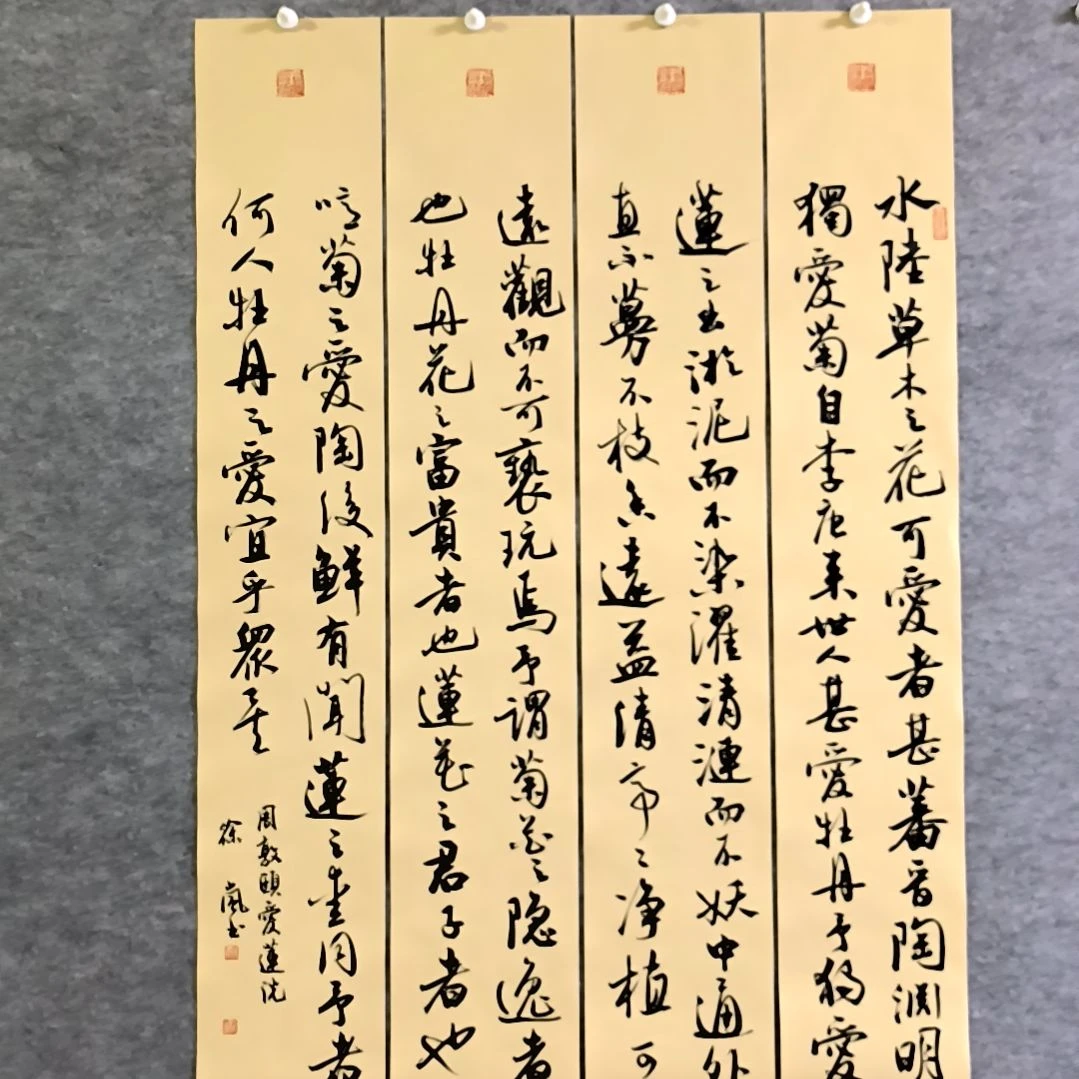 水陸草木之花可愛者甚蕃晉陶渊明
獨愛菊自李唐来世人甚愛牡丹予獨愛
蓮之出淤泥而不染濯清漣而不妖中通外
直不蔓不枝香遠益清亭亭净植可
遠觀而不可褻玩焉予謂菊花之隐逸者
也牡丹花之富貴者也蓮花之君子者也
噫菊之愛陶後鮮有聞蓮之愛同予者
何人牡丹之愛宜乎眾矣
周敦頤愛蓮说
徐嵐书